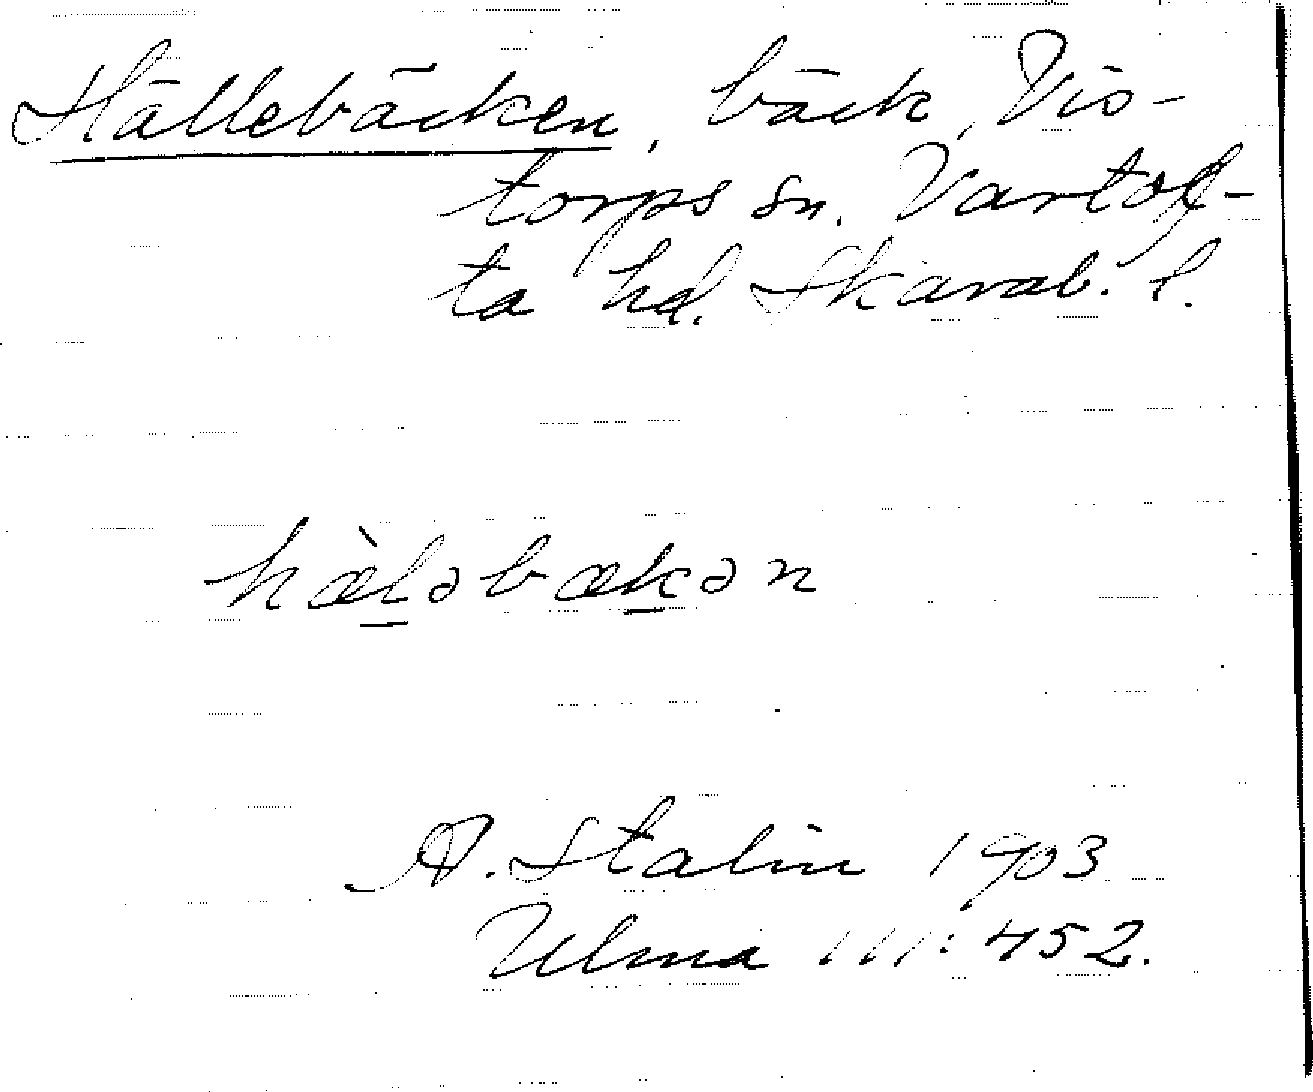 Hällebäcken, bäck, Vis-
torps sn. Vartof-
ta hd. Skarab. l.
hæ̀l̠əbæk̠ən
A. Stalin 1903
Ulma 111:452.